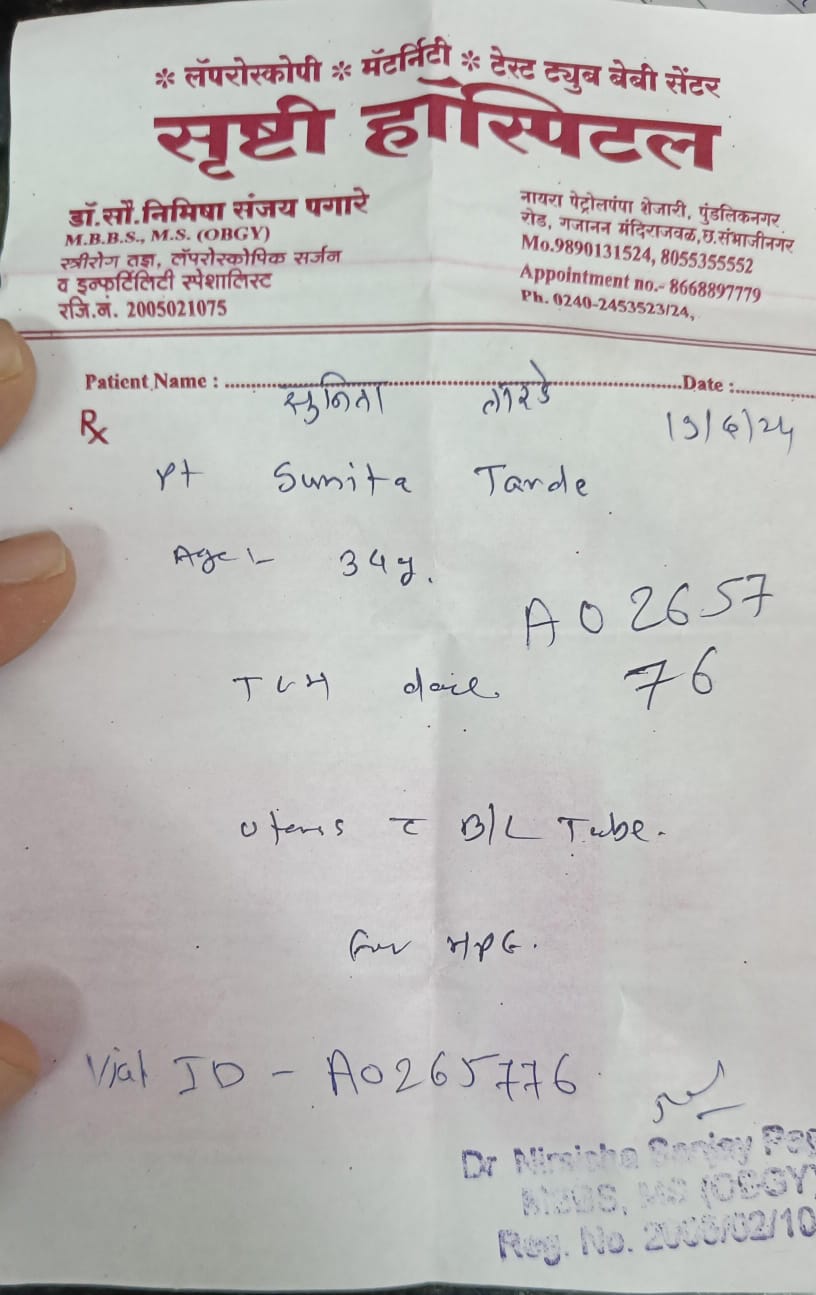 * लॅपरोस्कोपी * मॅटर्निटी * टेस्ट ट्युब बेबी सेंटर
सृष्टी हॉस्पिटल
डॉ.सौ.निमिषा संजय पगारे
M.B.B.S., M.S. (OBGY)
स्त्रीरोग तज्ञ, लॅपरोस्कोपिक सर्जन
व इन्फर्टिलिटी स्पेशालिस्ट
रजि.नं. 2005021075
नायरा पेट्रोलपंपा शेजारी, पुंडलिकनगर
रोड, गजानन मंदिराजवळ,छ.संभाजीनगर
Mo.9890131524, 8055355552
Appointment no.- 8668897779
Ph. 0240-2453523/24,
Patient Name : Date :
सुनिता तारडे
13/6/24
Rx
Pt Sunita Tarde
Age :- 34y.
A02657
76
TLH
Uterus c B/L Tube.
For HPE.
Vial ID - A0265776
Dr Nimisha Sanjay
MBBS, MS (OBGY)
Reg. No.